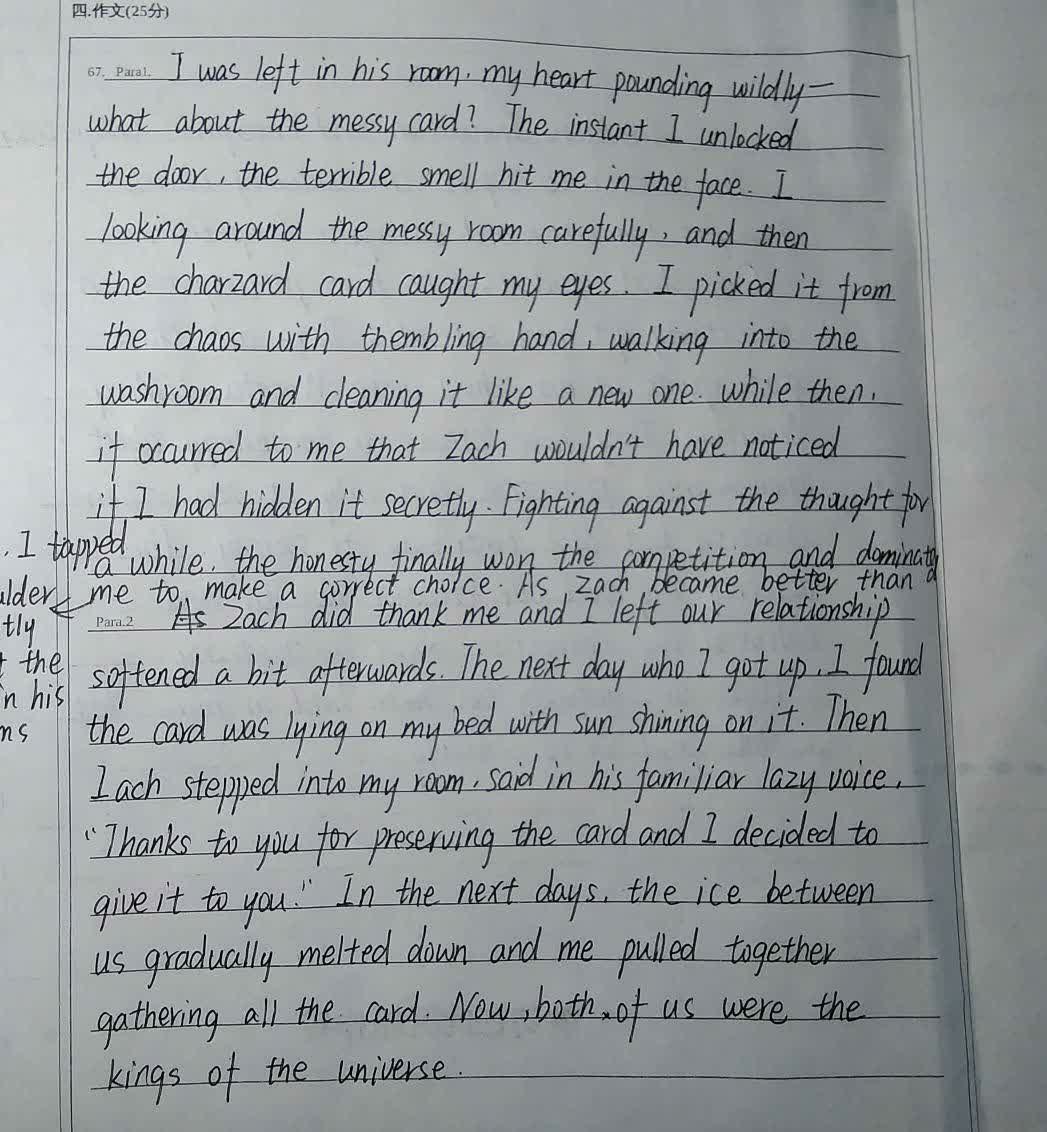 四.作文(25分)
67. Para1. I was left in his room, my heart pounding wildly—
what about the messy card? The instant I unlocked
the door, the terrible smell hit me in the face. I
looking around the messy room carefully, and then
the charzard card caught my eyes. I picked it from
the chaos with thembling hand, walking into the
washroom and cleaning it like a new one. while then,
it occurred to me that Zach wouldn't have noticed
if I had hidden it secretly. Fighting against the thought for
a while, the honesty finally won the competition and dominated
me to make a correct choice. As Zach became better than a
. I tapped
ulder
tly
the
n his
ms
Para.2 As Zach did thank me and I left our relationship
softened a bit afterwards. The next day who I got up, I found
the card was lying on my bed with sun shining on it. Then
Zach stepped into my room, said in his familiar lazy voice,
"Thanks to you for preserving the card and I decided to
give it to you." In the next days, the ice between
us gradually melted down and me pulled together
gathering all the card. Now, both of us were the
kings of the universe.